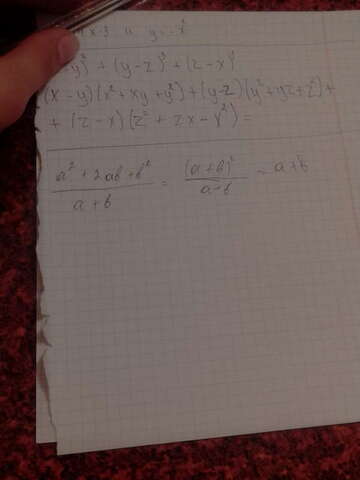 y = -x²
-y)³ + (y-z)³ + (z-x)³
(x-y)(x²+xy+y²)+(y-z)(y²+yz+z²)+
+ (z-x)(z²+zx-x²)=
a²+2ab+b² / a+b = (a+b)² / a+b = a+b